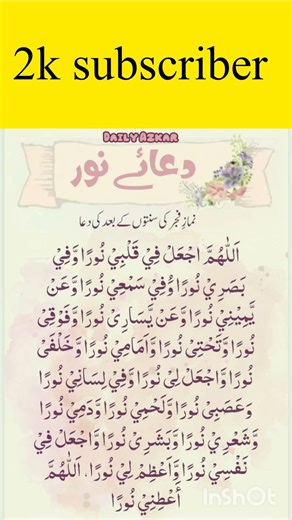 2k subscriber
DAILY AZKAR
دعائے نور
نماز فجر کی سنتوں کے بعد کی دعا
اَللّٰهُمَّ اجْعَلْ فِيْ قَلْبِيْ نُورًا وَّفِيْ
بَصَرِيْ نُورًا وَّفِيْ سَمْعِيْ نُورًا وَّعَنْ
يَّمِيْنِيْ نُورًا وَّعَنْ يَّسَارِىْ نُورًا وَّفَوْقِىْ
نُورًا وَّتَحْتِىْ نُورًا وَّاَمَامِىْ نُورًا وَّخَلْفِىْ
نُورًا وَّاجْعَلْ لِىْ نُورًا وَّفِيْ لِسَانِىْ نُورًا
وَّعَصَبِىْ نُورًا وَّلَحْمِىْ نُورًا وَّدَمِىْ نُورًا
وَّشَعْرِىْ نُورًا وَّبَشَرِىْ نُورًا وَّاجْعَلْ فِيْ
نَفْسِىْ نُورًا وَّاَعْظِمْ لِيْ نُورًا. اَللّٰهُمَّ
أَعْطِنِيْ نُورًا
InShOt